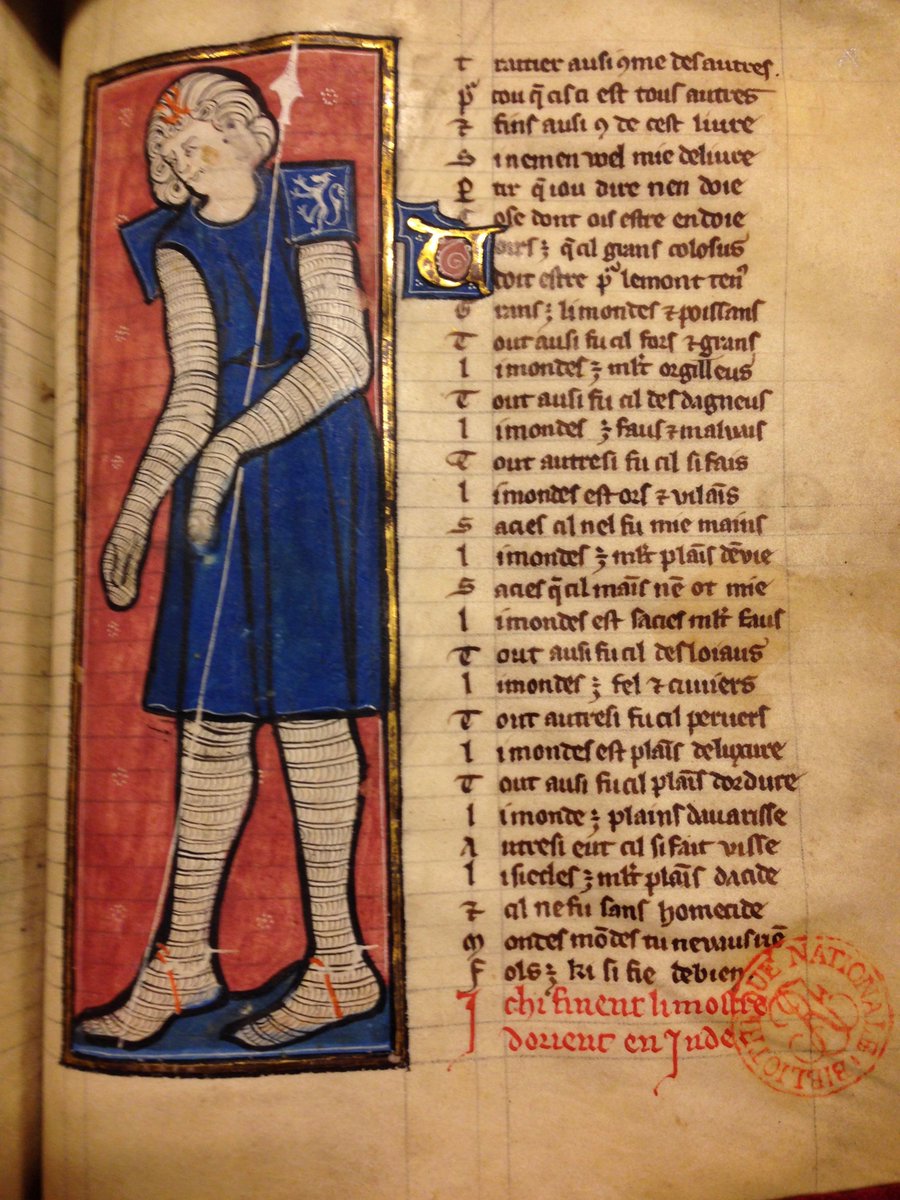 T raitier ausi 9me des autres.
P tou q̄ cis ci est tous autres
⁊ fins ausi 9 de cest liure
S i nemen wel mie deliure
P ar q̄ iou dire nen doie
C ose dont ois estre en doie
ours ⁊ q̄ cil grans colosus
doit estre p lemont
G rans ⁊ li mondes ⁊ poissans
T out ausi fu cil fors ⁊ grans
l i mondes ⁊ mlt orgilleus
T out ausi fu cil desdagneus
l i mondes ⁊ faus ⁊ maluus
T out autresi fu cil si fais
l i mondes est ors ⁊ vilais
S acies cil nel fu mie mains
l i mondes ⁊ mlt plais dēvie
S acies q̄ cil mais nē ot mie
l i mondes est sacies mlt faus
T out ausi fu cil desloiaus
l i mondes ⁊ fel ⁊ cuuiers
T out autresi fu cil peruers
l i mondes est plais deluxure
T out ausi fu cil plais dordure
l i monde ⁊ plains dauarisse
A utresi eut cil si fait visse
l i siecles ⁊ mlt plais dacide
⁊ cil ne fu sans homecide
M ondes mōdes tu ne vaus riē
F ols ⁊ ki si fie de bien.
I chi finent li mostre
dorient en Jnde
BIBLIOTHEQUE NATIONALE